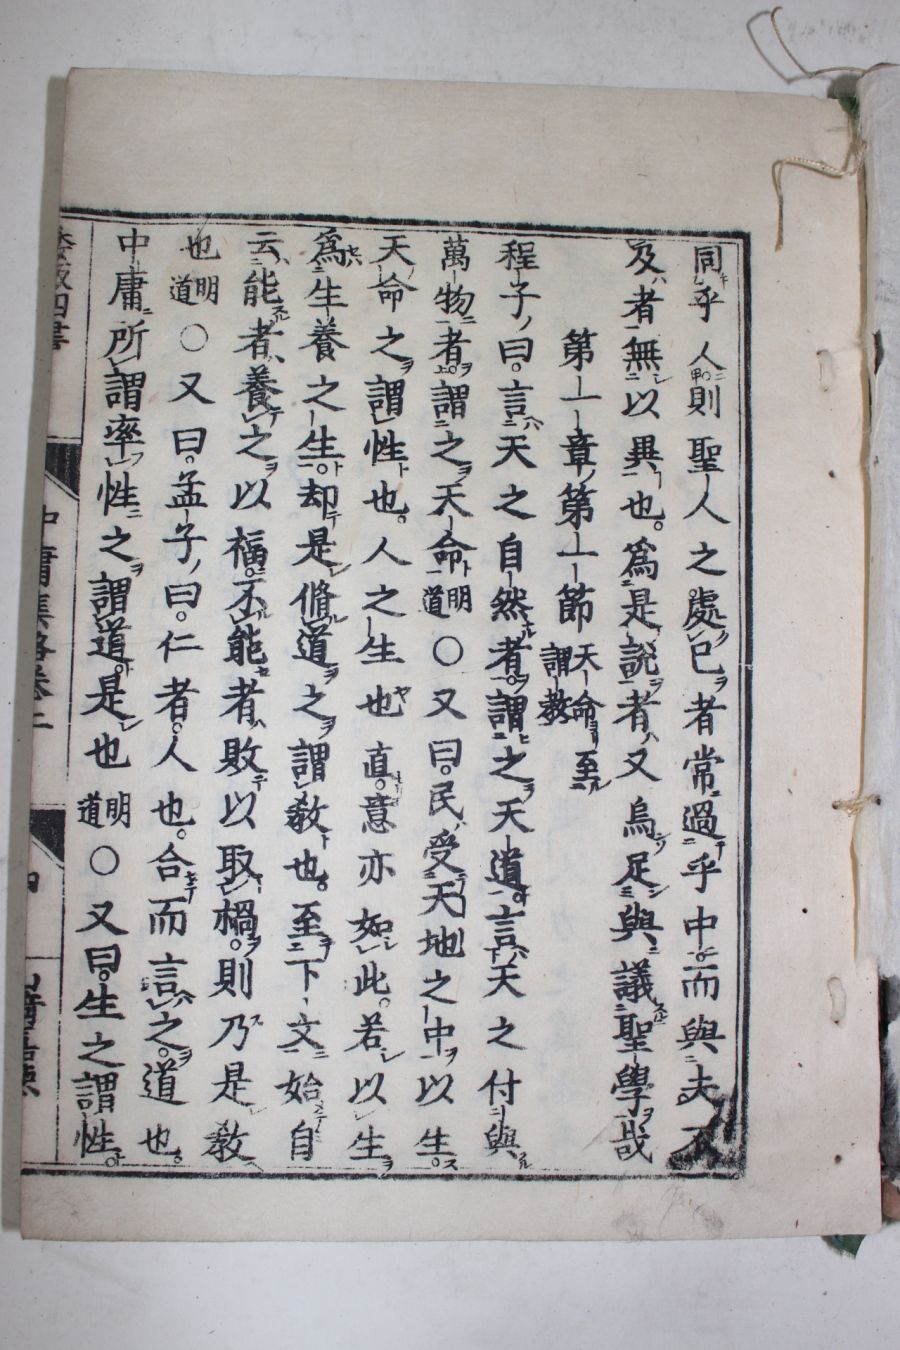 同乎人則聖人之處已者常過乎中而與夫不
及者無以異也爲是説者又烏足與議聖學哉
第一章第一節天命至謂教
程子曰言天之自然者謂之天道言天之付與
萬物者謂之天命明道○又曰民受天地之中以生
天命之謂性也人之生也直意亦如此若以生
爲生養之生却是脩道之謂教也至下文始自
云能者養之以福不能者敗以取禍則乃是教
也明道○又曰孟子曰仁者人也合而言之道也
中庸所謂率性之謂道是也明道○又曰生之謂性
中庸集略卷上